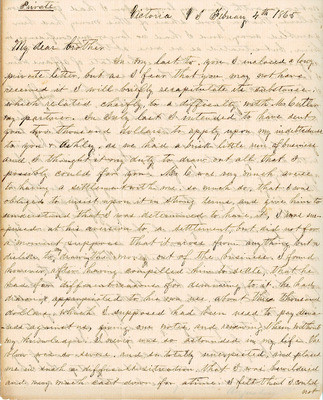 Private
Victoria V I February 4th 1865
My dear Brother
In my last to you I inclosed a long
private letter, but as I fear that you may not have
received it I will briefly recapitulate its substance,
which related chiefly to a difficulty with Mr Cutler
my partner. In July last I intended to have sent
you two thousand dollars to apply upon my indebtedness
to you & Ashley, as we had a brisk little run of business
and I thought it my duty to draw out all that I
possibly could for you. Mr C was very much averse
to having a settlement with me, so much so, that I was
obliged to insist upon it in strong terms, and give him to
understand that I was determined to have it, I was sur-
prised at his aversion to a settlement, but did not for
a moment suppose that it arose from anything but a
dislike to my drawing money out of the business. I found
however, after having compelled him to settle, that he
had a far different reason for demurring to it. he had
appropriated to his own use about three thousand
dollars, which I supposed had been used to pay deman
ds against us, giving our notes, and renewing them without
my knowledge. I never was so astounded in my life. the
blow was so severe, and so totally unexpected, and placed
me in such a difficult situation that I was bewildered
and very much cast down for a time. I felt that I could
not